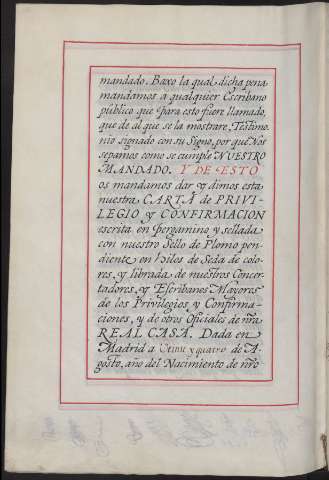 mandado. Baxo la qual dicha pena
mandamos a qualquier Escribano
publico que para esto fuere llamado,
que dè al que se la mostrare, Testimo-
nio signado con su Signo, por que Nos
sepamos como se cumple NUESTRO
MANDADO. Y DE ESTO
os mandamos dar y dimos esta
nuestra CARTA de PRIVI-
LEGIO y CONFIRMACION
escrita en Pergamino y sellada
con nuestro Sello de Plomo pen-
diente en hilos de Seda de colo-
res, y librada de nuestros Concer-
tadores, y Escribanos Mayores
de los Privilegios y Confirma-
ciones, y de otros Oficiales de nr̃a
REAL CASA. Dada en
Madrid a Veinte y quatro de A-
gosto, año del Nacimiento de nr̃o